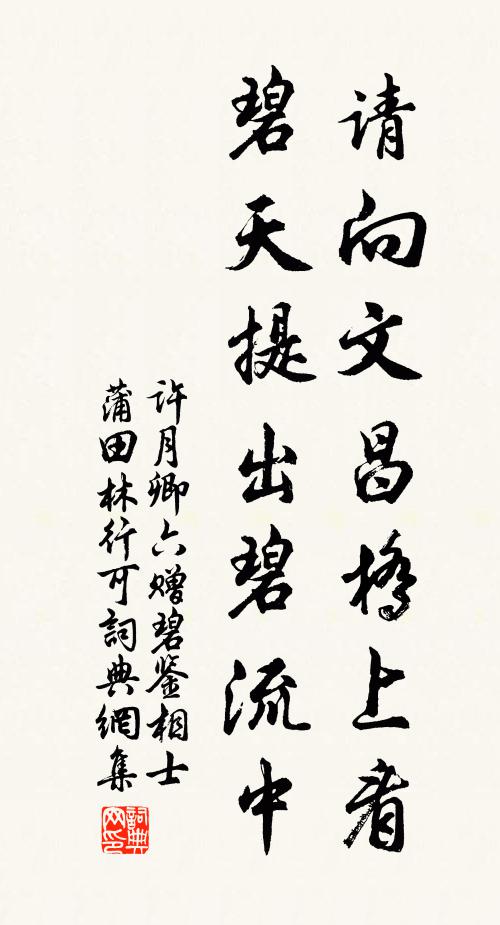 请向文昌橋上看
碧天提出碧流中
許月卿六赠碧鉴相士
蒲田林行可詞典網集
詞典网印